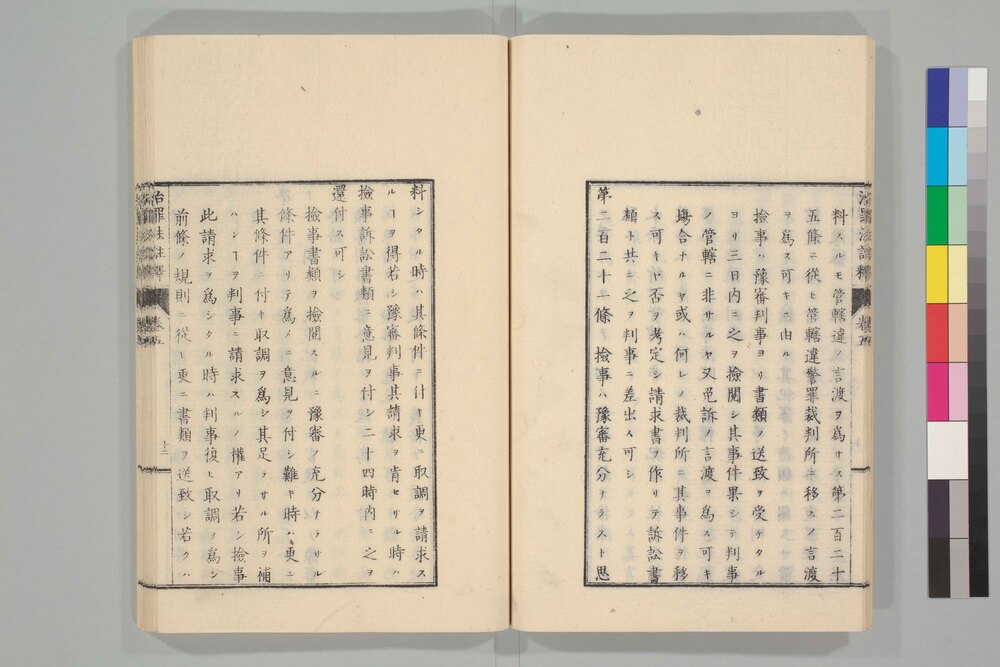 治罪法註釋 卷五
料スルモ管轄違ノ言渡ヲ爲サス第二百二十
五條ニ從ヒ管轄違警罪裁判所ニ移スノ言渡
ヲ爲ス可キニ由ル
撿事ハ豫審判事ヨリ書類ノ送致ヲ受ケタル
ヨリ三日内ニ之ヲ撿閲シ其事件果シテ判事
ノ管轄ニ非サルヤ又免訴ノ言渡ヲ爲ス可キ
塲合ナルヤ或ハ何レノ裁判所ニ其事件ヲ移
ス可キヤ否ヲ考定シ請求書ヲ作リテ訴訟書
類ト共ニ之ヲ判事ニ差出ス可シ
第二百二十一條 撿事ハ豫審充分ナラスト思
料シタル時ハ其條件ニ付キ更ニ取調ヲ請求ス
ルヿヲ得若シ豫審判事其請求ヲ肯セサル時ハ
撿事訴訟書類ニ意見ヲ付シ二十四時内ニ之ヲ
還付ス可シ
撿事書類ヲ撿閲スルニ豫審ノ充分ナラサル
條件アリテ爲メニ意見ヲ付シ難キ時ハ更ニ
其條件ニ付キ取調ヲ爲シ其足ラサル所ヲ補
ハンヿヲ判事ニ請求スルノ權アリ若シ撿事
此請求ヲ爲シタル時ハ判事復ヒ取調ノ爲シ
前條ノ規則ニ從ヒ更ニ書類ヲ送致シ若クハ
治罪法註釋 卷五 十二